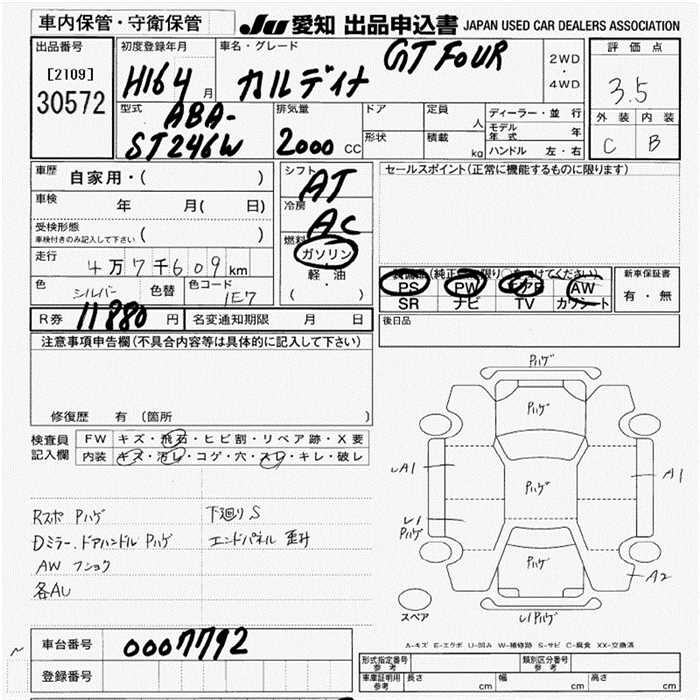 車内保管・守衛保管
JU 愛知 出品申込書 JAPAN USED CAR DEALERS ASSOCIATION
出品番号
[2109]
30572
初度登録年月
H16 4 月
車名・グレード
GT FOUR
カルディナ
2WD
・
4WD
評価点
3.5
外装 内装
C B
型式
ABA-
ST246W
排気量
2000 CC
ドア
定員
人
形状
積載
kg
ディーラー・並行
モデル年式 年
ハンドル 左・右
車歴 自家用・( )
車検 年 月( 日)
受検形態
車検付きのみ記入して下さい ( )
走行
4万7千609km
色 シルバー 色替 色コード 1E7
シフト
AT
冷房
AC
燃料
ガソリン
・
軽・油
( )
セールスポイント(正常に機能するものに限ります)
PS PW エアB AW
SR ナビ TV カワシート
新車保証書
有・無
R券 11880 円 名変通知期限 月 日
後日品
注意事項申告欄(不具合内容等は具体的に記入して下さい)
修復歴 有(箇所 )
検査員
記入欄
FW キズ・飛石・ヒビ割・リペア跡・X要
内装 キズ・汚レ・コゲ・穴・スレ・キレ・破レ
Rスポ Pハゲ
下廻りS
Dミラー.ドアハンドル Pハゲ
エンドパネル 歪み
AW フショク
各AU
Pハゲ
Pハゲ
A1
Pハゲ
A1
U1
Pハゲ
Pハゲ
A2
スペア
U1Pハゲ
A-キズ E-エクボ U-凹み W-補修跡 S-サビ C-腐食 XX-交換済
車台番号 0007792
登録番号
形式指定番号
参考
類別区分番号
参考
車庫証明用
参考
長さ cm 幅 cm 高さ cm